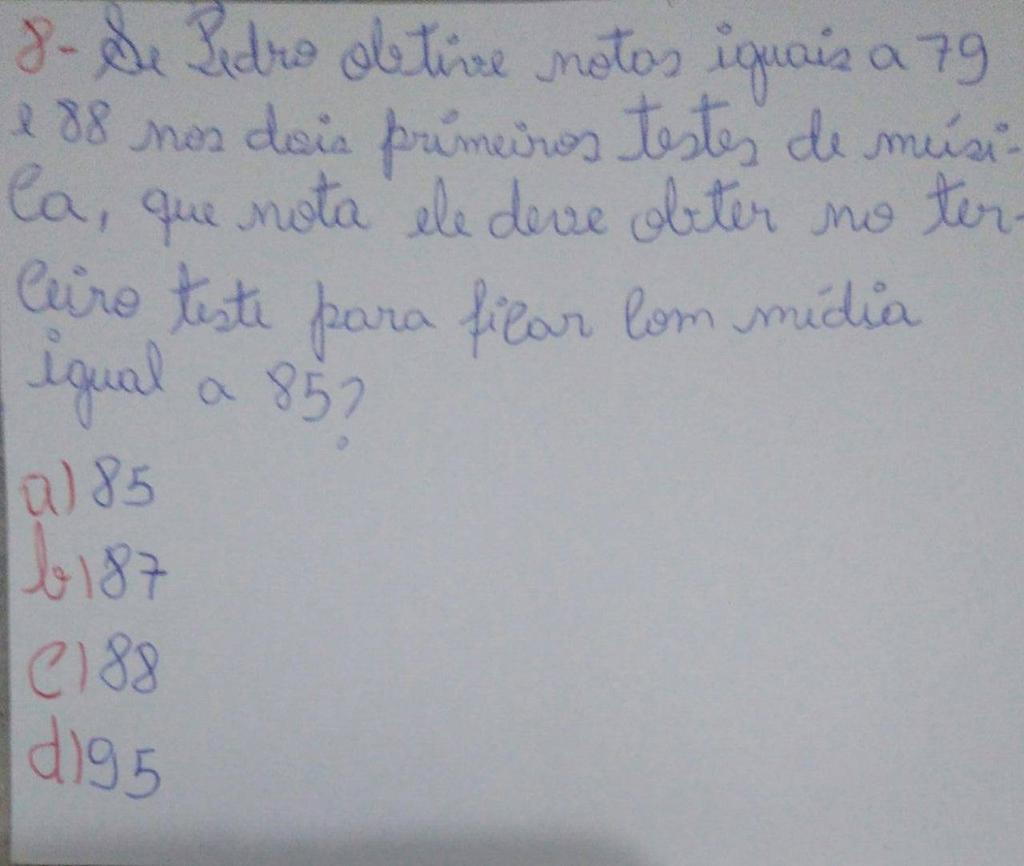 8- Se Pedro obtive notas iguais a 79
e 88 nos dois primeiros testes de músi-
ca, que nota ele deve obter no ter-
ceiro teste para ficar com média
igual a 85?
a) 85
b) 87
c) 88
d) 95